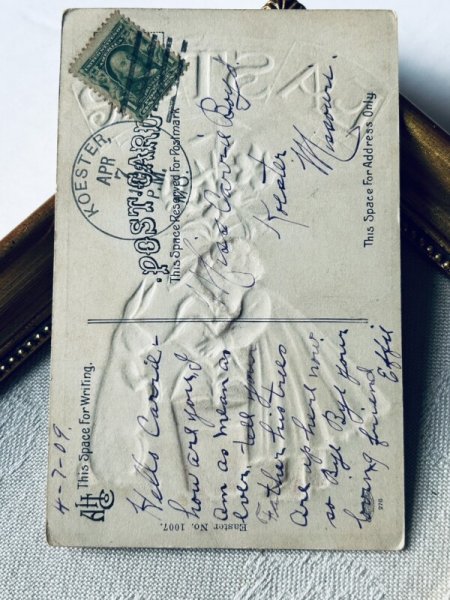 POST CARD
This Space Reserved for Postmark
This Space For Address Only
KOESTER,
APR
7
P.M.
MO.
Miss Carrie Boyd.
Koester
Missouri.
This Space For Writing.
4-7-09
Hello Carrie-
how are you, I
am as mean as
ever. tell your
Father his trees
are up now
so Bye Bye your
loving friend
Effie
Easter No. 1007.